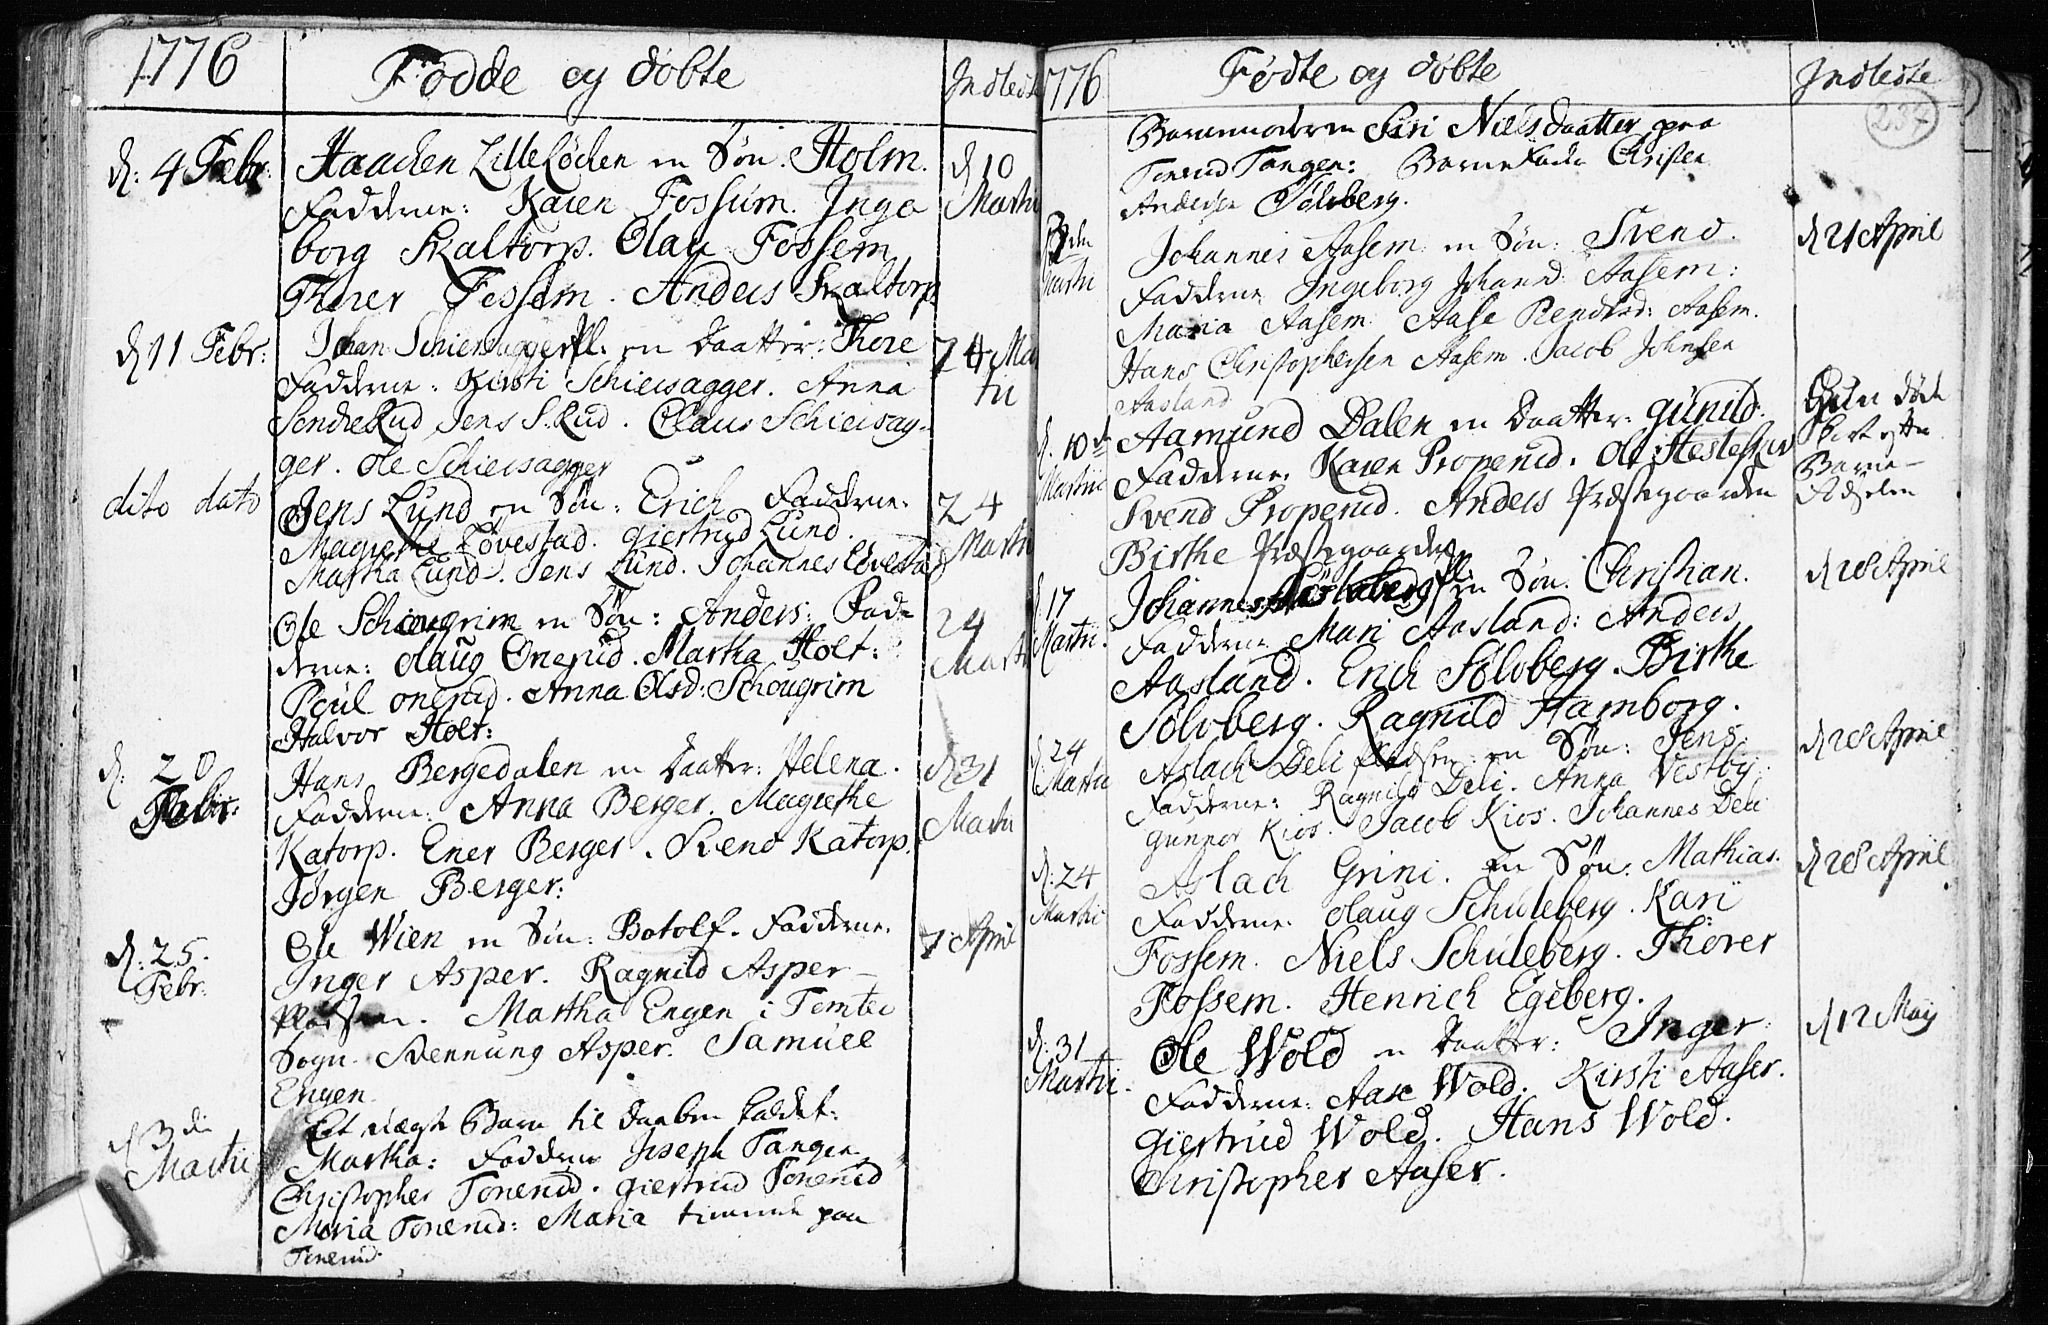 1776
Fødde og døbte
Indledte
d: 4 Febr:
Haachen Lille Løchen en Søn. Holm.
d 10
Martii
Fadderne: Karen Fossum. Inge
borg Skaltorp. Olau Fossem
Thorer Fossem. Anders Skaltorp
d 11 Febr:
Johan Schieisagger Pl. en Daatter: Thore
24 Mar
tii
Fadderne: Kirsti Schieisagger. Anna
SendreRud Jens S. Rud. Claus Schieisag-
ger. Ole Schieisagger
dito dato
Jens Lund en Søn: Erich Fadderne.
24
Martii
Magrethe Løvestad. Giertrud Lund.
Martha Lund. Jens Lund. Johannes Løvestad
Ole Schiengrim en Søn: Anders: Fad-
24
Martii
derne: Olaug Onerud. Martha Holt:
Poul Onerud. Anna Olsd: Schougrim
Halvor Holt:
d: 20
Febr:
Hans Bergedalen en Daatter: Helena.
d 31
Martii
Fadderne: Anna Berger. Magrethe
Katorp. Ener Berger. Svend Katorp.
Jørgen Berger:
d: 25.
Febr:
Ole Wien en Søn: Botolf. Fadderne.
7 April
Inger Asper. Ragnild Asper-
Pladsen. Martha Engen i Tomter
Sogn. Svennung Asper. Samuel
Engen.
d 3die
Martii
Et uægte Barn til Daaben kaldet:
Martha: Fadderne Joseph Tangen
Christopher Tonerud. Giertrud Tonerud
Maria Tonerud: Maria tienende paa
Tonerud.
1776
Fødte og døbte
Indledte
237
Barnemoderen Siri Nielsdaatter paa
Tonerud Tangen: Barne Fader Christen
Andersen Sølvberg.
3den
Martii
Johannes Aasem en Søn: Svend.
d 21 April
Fadderne Ingeborg Johansd: Aasem:
Maria Aasem. Aase Aasem.
Hans Christophersen Aasem. Jacob Johnsen
Aasland
d. 10de
Martii
Aamund Dalen en Daatter: Gunild.
døde
strax efter
Barne-
Fødselen
Fadderne. Karen Properud. Ole Hesteskud
Svend Properud. Anders Præstegaarden
Birthe Præstegaarden
d 17
Martii.
Johannes Sølvberg Pl. en Søn. Christian.
d 28 April
Fadderne Mari Aasland: Anders
Aasland. Erich Sølvberg. Birthe
Sølvberg. Ragnild Hamborg.
d 24
Martii
Aslach Deli pladsen en Søn: Jens.
d 28 April
Fadderne: Ragnild Deli. Anna Vestby.
Gunnor Kios. Jacob Kios. Johannes Deli
d: 24
Martii
Aslach Grini. En Søn: Mathias.
d 28 April
Fadderne. Olaug Schuleberg. Kari
Fossem. Niels Schuleberg. Thorer
Fossem. Henrich Egeberg.
d: 31
Martii.
Ole Wold en Daatter: Inger.
d 12 Maij
Fadderne: Aase Wold. Kirsti Aaser.
Giertrud Wold. Hans Wold.
Christopher Aaser.